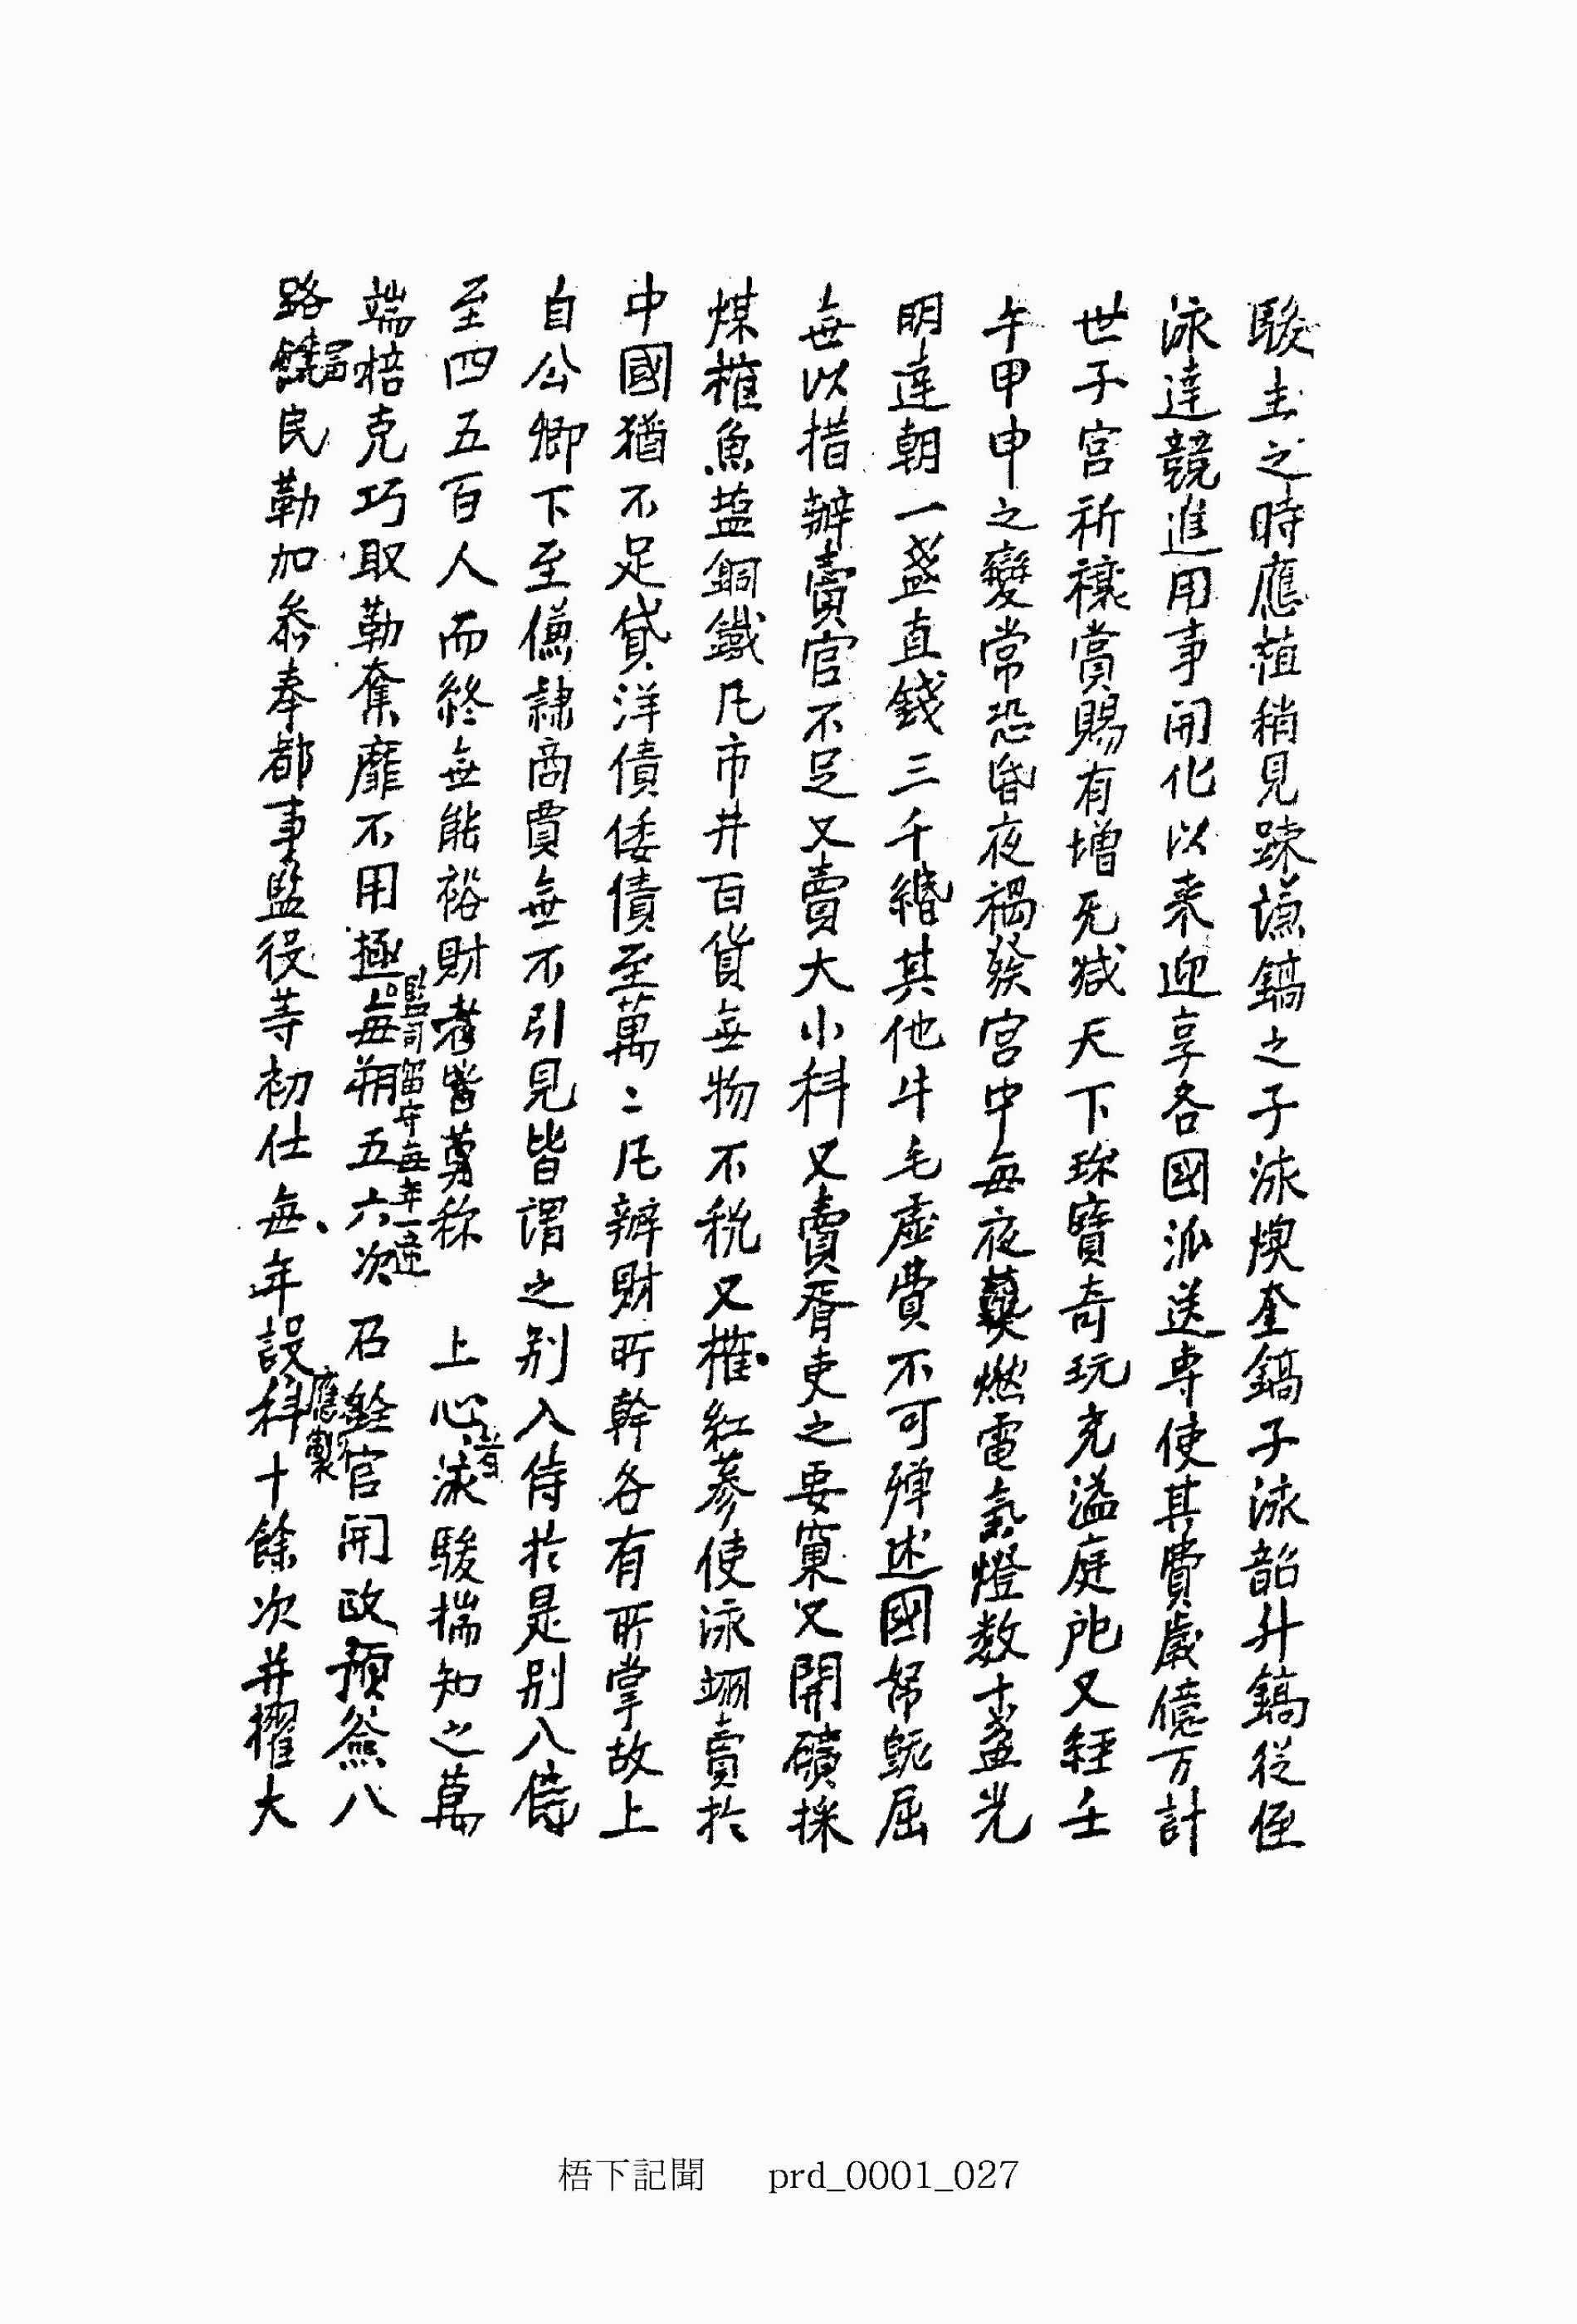 駿主之時應植稍見踈謙鎬之子泳煥奎鎬子泳韶升鎬從侄
泳達競進用事開化以来迎享各國派送專使其費歲億万計
世子宮祈禳賞賜有增无减天下珎寶奇玩充溢庭戺又経壬
午甲申之變常恐昏夜禍發宮中每夜爇燃電氣燈数十盞光
明達朝一盞直錢三千緡其他牛毛虛費不可殫述國帑旣屈
無以措辦賣官不足又賣大小科又賣胥吏之要窠又開礦採
煤榷魚盐銅鐵凡市井百貨無物不稅又榷紅蔘使泳翊賣於
中國猶不足貸洋債倭債至萬〻凡辦財所幹各有所掌故上
自公卿下至傔隷商賈無不引見皆謂之别入侍於是别入侍
至四五百人而終無能裕財者皆莫称 上心者泳駿揣知之萬
端掊克巧取勒奪靡不用極監司留守每年一遞每朔五六次召銓官開政預签八
路富民勒加叅奉都事監役等初仕每年設應製科十餘次幷擢大
梧下記聞 prd_0001_027